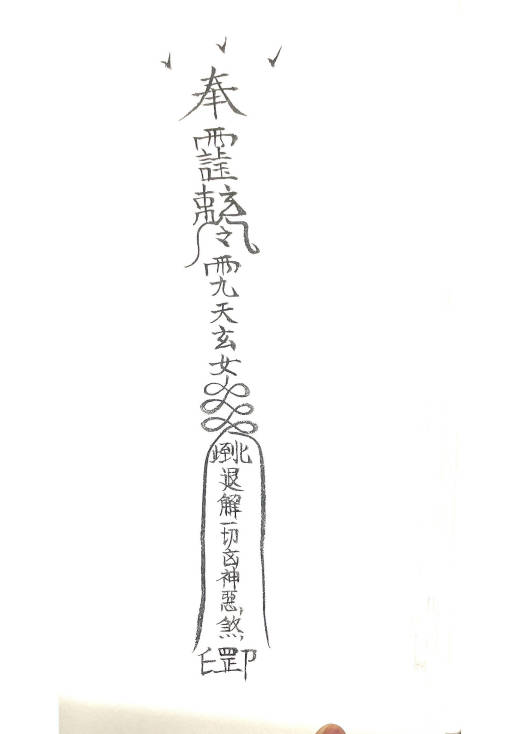 奉
令
九
天
玄
女
退
解
一
切
凶
神
惡
煞
罡